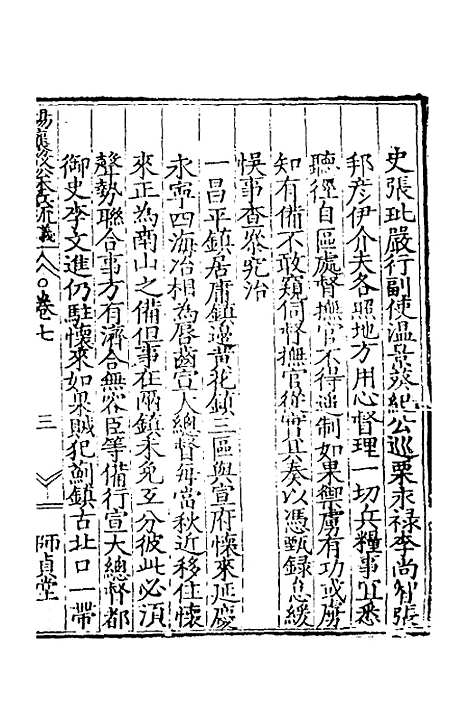 史張玭嚴行副使溫景葵紀公巡栗永祿李尚智張
邦彥伊介夫各照地方用心督理一切兵糧事宜悉
聽徑自區處督撫官不得遙制如果禦虜有功或虜
知有備不敢窺伺督撫官從實具奏以憑甄錄怠緩
悞事查叅究治
一昌平鎮居庸鎮邊黃花鎮三區與宣府懷來延慶
永寧四海冶相為唇齒宣大總督每當秋近移住懷
來正為南山之備但事在兩鎮未免互分彼此必須
聲勢聯合事方有濟合無容臣等備行宣大總督都
御史李文進仍駐懷來如果賊犯薊鎮古北口一帶
楊襄毅公本兵疏議 卷七 三 師貞堂